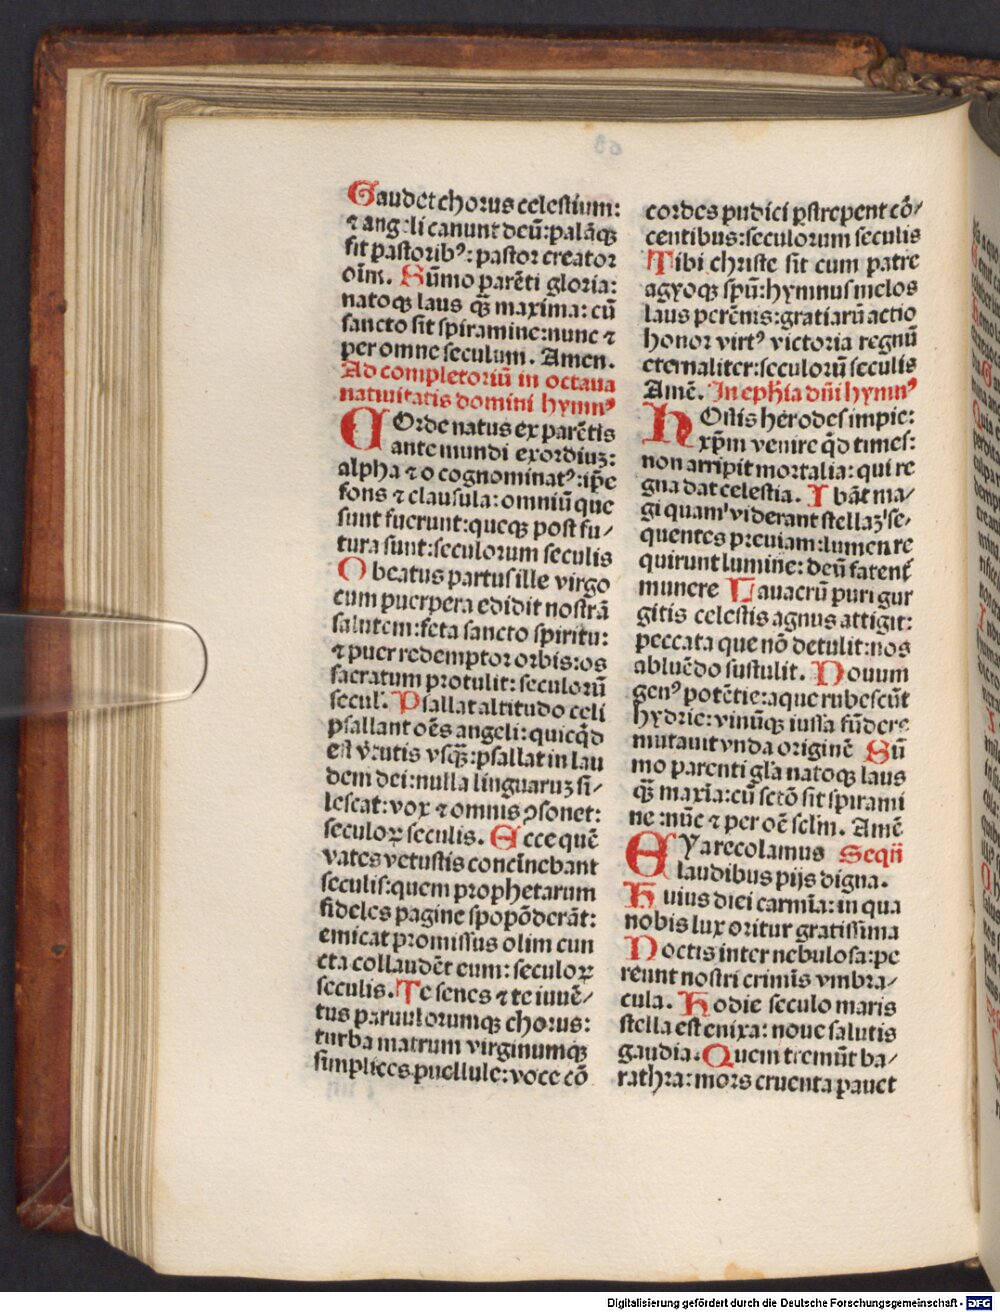 Gaudet chorus celestium:
⁊ angeli canunt deū: palāqꝫ
fit pastoribꝰ: pastor creator
oīm. Sūmo parēti gloria:
natoqꝫ laus qꝫ̄ maxima: cū
sancto sit spiramine: nunc ⁊
per omne seculum. Amen.
Ad completoriū in octaua
natiuitatis domini hymnꝰ
COrde natus ex parētis
ante mundi exordiuꝫ:
alpha ⁊ o cognominatꝰ: ip̄e
fons ⁊ clausula: omniū que
sunt fuerunt: queqꝫ post fu/
tura sunt: seculorum seculis
O beatus partus ille virgo
cum puerpera edidit nostrā
salutem: feta sancto spiritu:
⁊ puer redemptor orbis: os
sacratum protulit: seculorū
secul'. Psallat altitudo celi
psallant oēs angeli: quicqͥd
est v̓tutis vsqꝫ̄: psallat in lau
dem dei: nulla linguaruꝫ si/
lescat: vox ⁊ omnis ꝯsonet:
seculoꝝ seculis. Ecce quē
vates vetustis concinebant
seculis: quem prophetarum
fideles pagine spopōderāt:
emicat promissus olim cun
cta collaudēt eum: seculoꝝ
seculis. Te senes ⁊ te iuuē/
tus paruulorumqꝫ chorus:
turba matrum virginumqꝫ
simplices puellule: voce cō
cordes pudici ꝑstrepent cō/
centibus: seculorum seculis
Tibi christe sit cum patre
agyoqꝫ spū: hymnus melos
laus perēnis: gratiarū actio
honor virtꝰ victoria regnū
eternaliter: seculorū seculis
Amē. In eph̄ia dn̄i hymnꝰ
HOstis herodes impie:
xp̄m venire qͥd times:
non arripit mortalia: qui re
gna dat celestia. Ibāt ma/
gi quam' viderant stellaꝫ' se/
quentes preuiam: lumen re
quirunt lumine: deū fatent᷑
munere Lauacrū puri gur
gitis celestis agnus attigit:
peccata que nō detulit: nos
abluēdo sustulit. Nouum
genꝰ potētie: aque rubescūt
hydrie: vinūqꝫ iussa fūdere
mutauit vnda originē Sū
mo parenti gl̄a natoqꝫ laus
qꝫ̄ maxīa: cū sctō sit spirami
ne: nūc ⁊ per oē sclm̄. Amē
EYa recolamus Seqn̄
laudibus pijs digna.
Huius diei carmīa: in qua
nobis lux oritur gratissima
Noctis inter nebulosa: pe
reunt nostri crimīs vmbra/
cula. Hodie seculo maris
stella est enixa: noue salutis
gaudia. Quem tremūt ba/
rathra: mors cruenta pauet
Digitalisierung gefördert durch die Deutsche Forschungsgemeinschaft - DFG